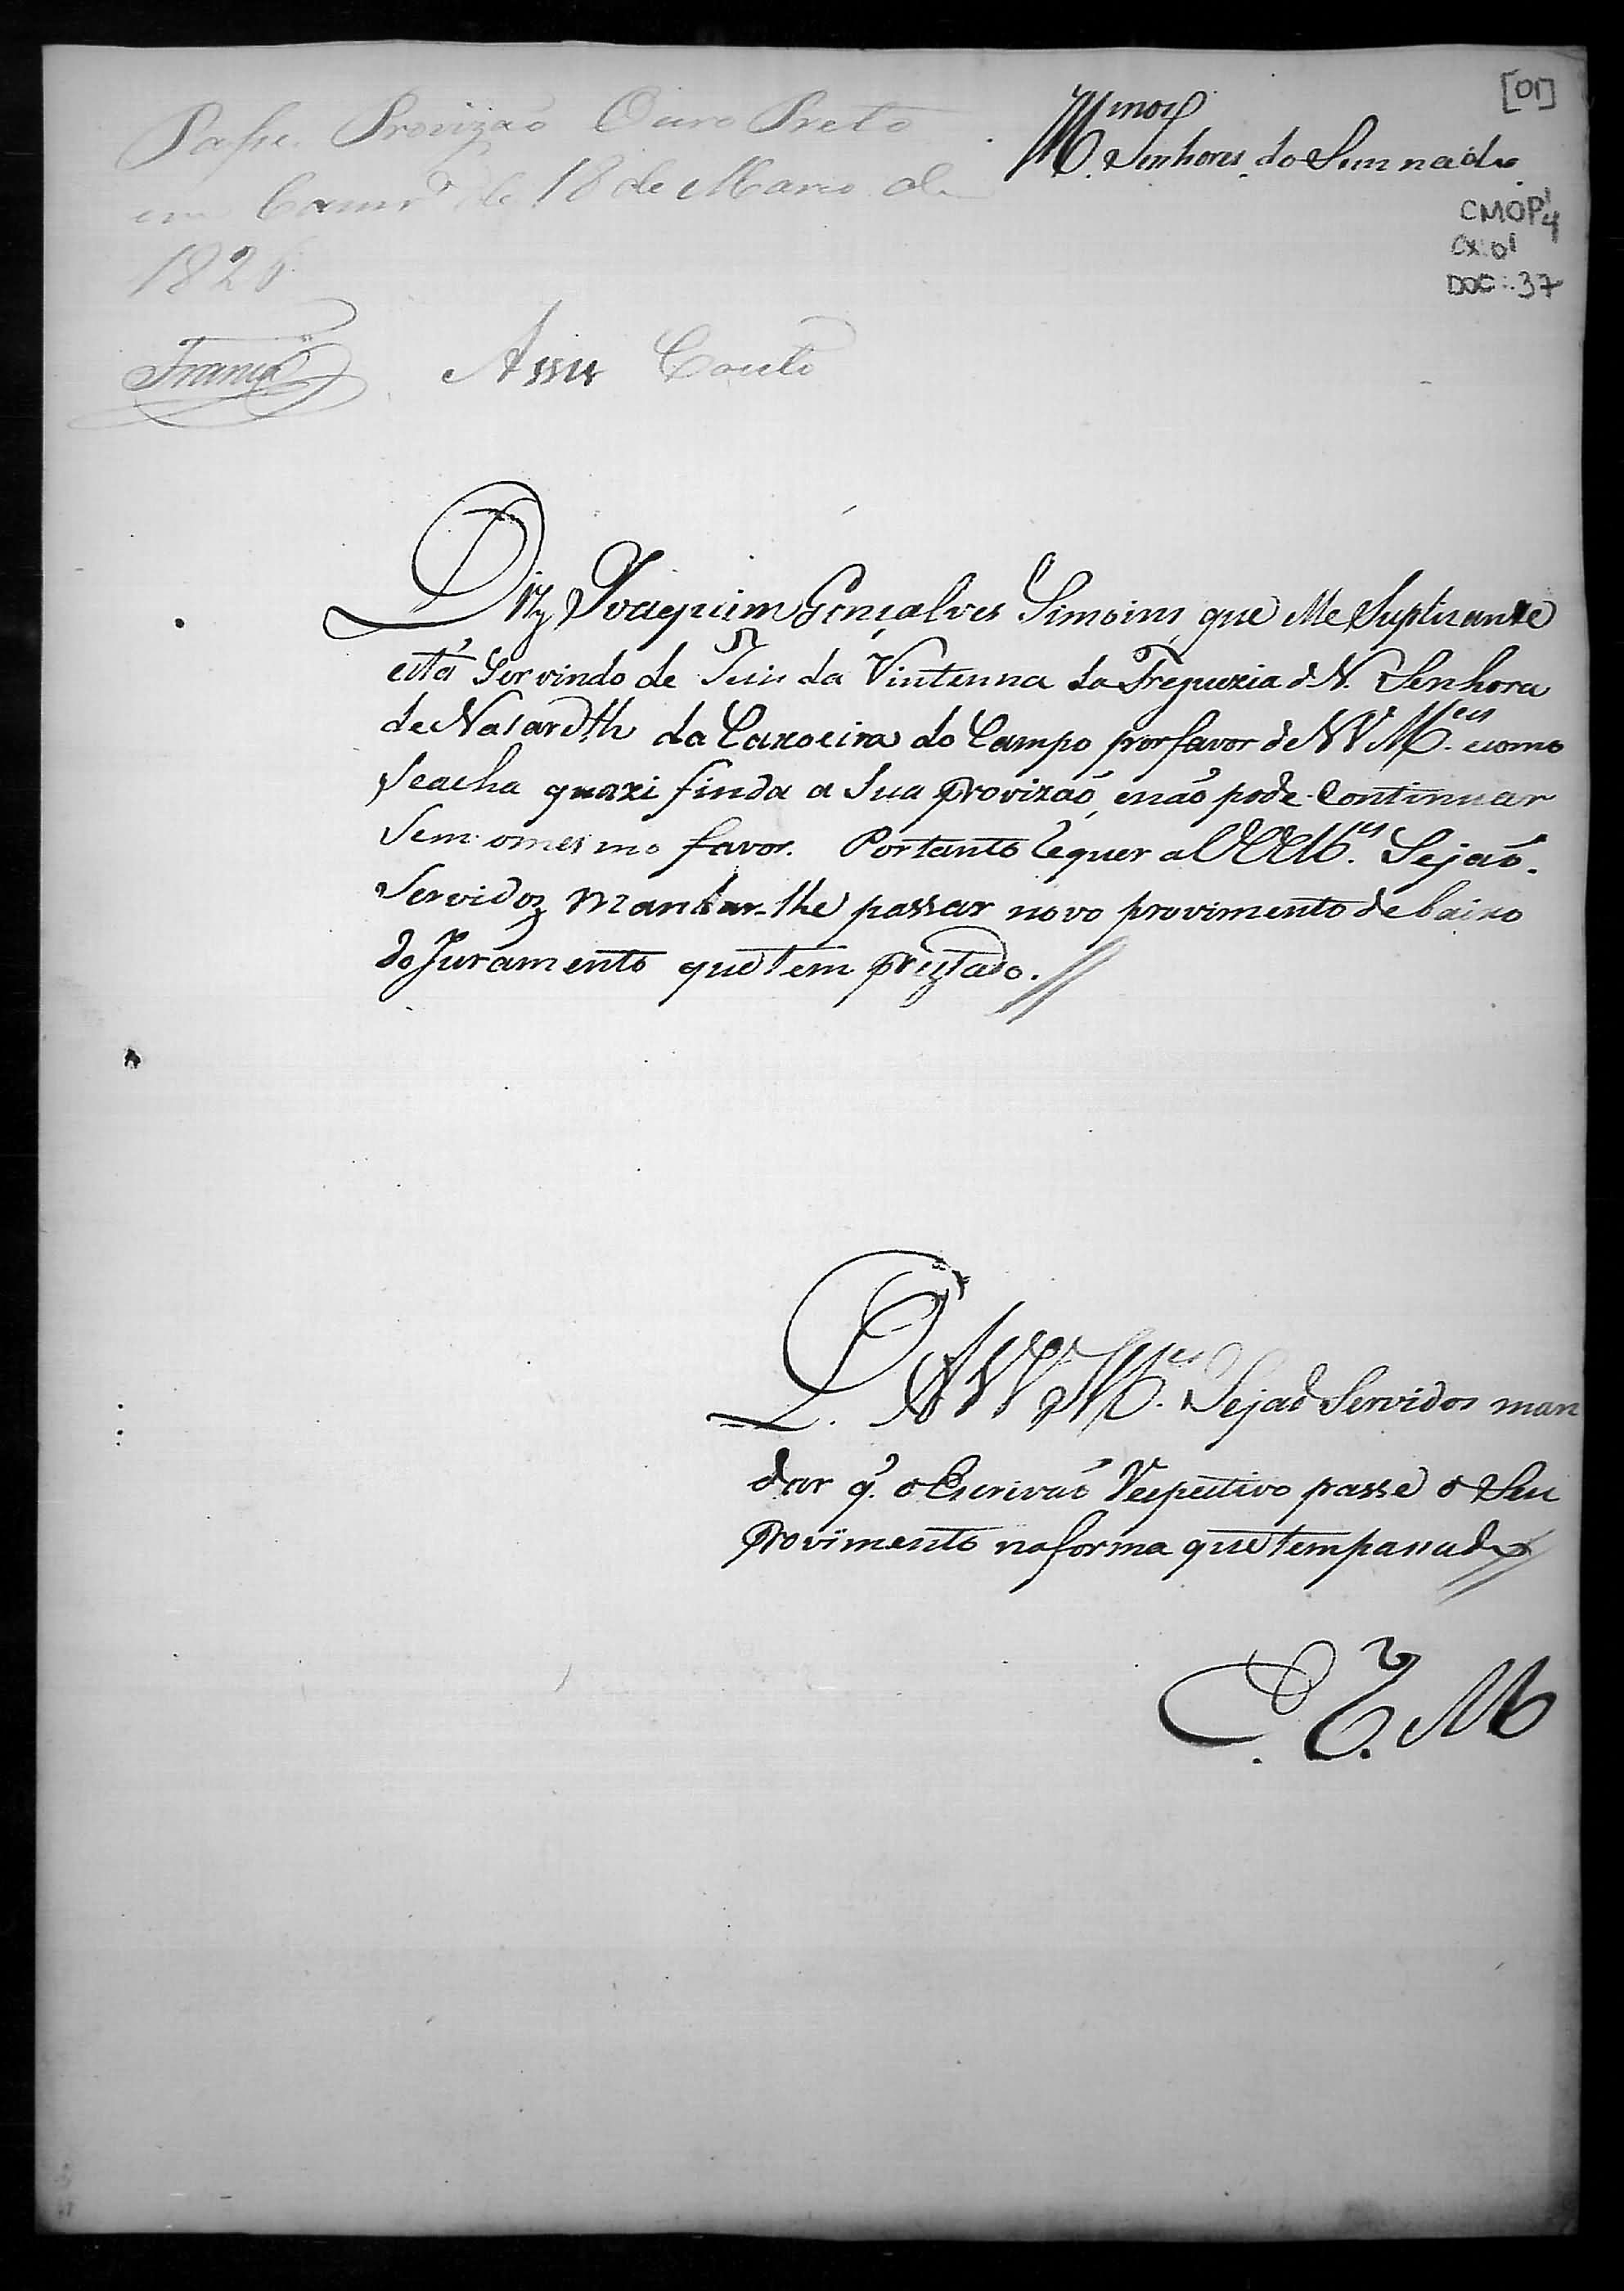 [01]
Passe Provizão Ouro Preto
em Camrª de 18 de Março de
1826
França Assis Couto
Mmos
Senhores do Sennado
CMOP 1/4
CX: 01
DOC: 37
Diz Joaquim Gonçalves Simoins, que elle Suplicante
está Servindo de Juis da Vintenna da Freguezia d N. Senhora
de Nasareth da Caxoeira do Campo por favor de VVM.ces ecomo
Seacha quazi finda a Sua Provizaõ, enaõ pode Continuar
Sem omesmo favor. Portanto Requer a VVM.ces Sejaõ
Servidos Mandar-lhe passar novo provimento debaixo
do Juramento que tem prestado.//
P. A VVM.ces Sejaõ Servidos man
dar q.' o Escrivaõ Respectivo passe o Seu
Provimento naforma que tem passado//
E. R. M